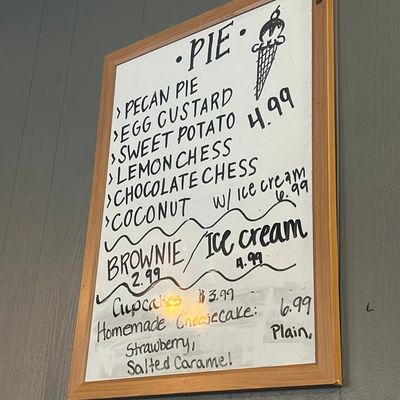 • PIE •
> PECAN PIE
> EGG CUSTARD
> SWEET POTATO 4.99
> LEMON CHESS
> CHOCOLATE CHESS
> COCONUT w/ ice cream
6.99
BROWNIE / Ice cream
2.99 4.99
Cupcakes $3.99
Homemade Cheesecake: 6.99
Strawberry, Plain,
Salted Caramel